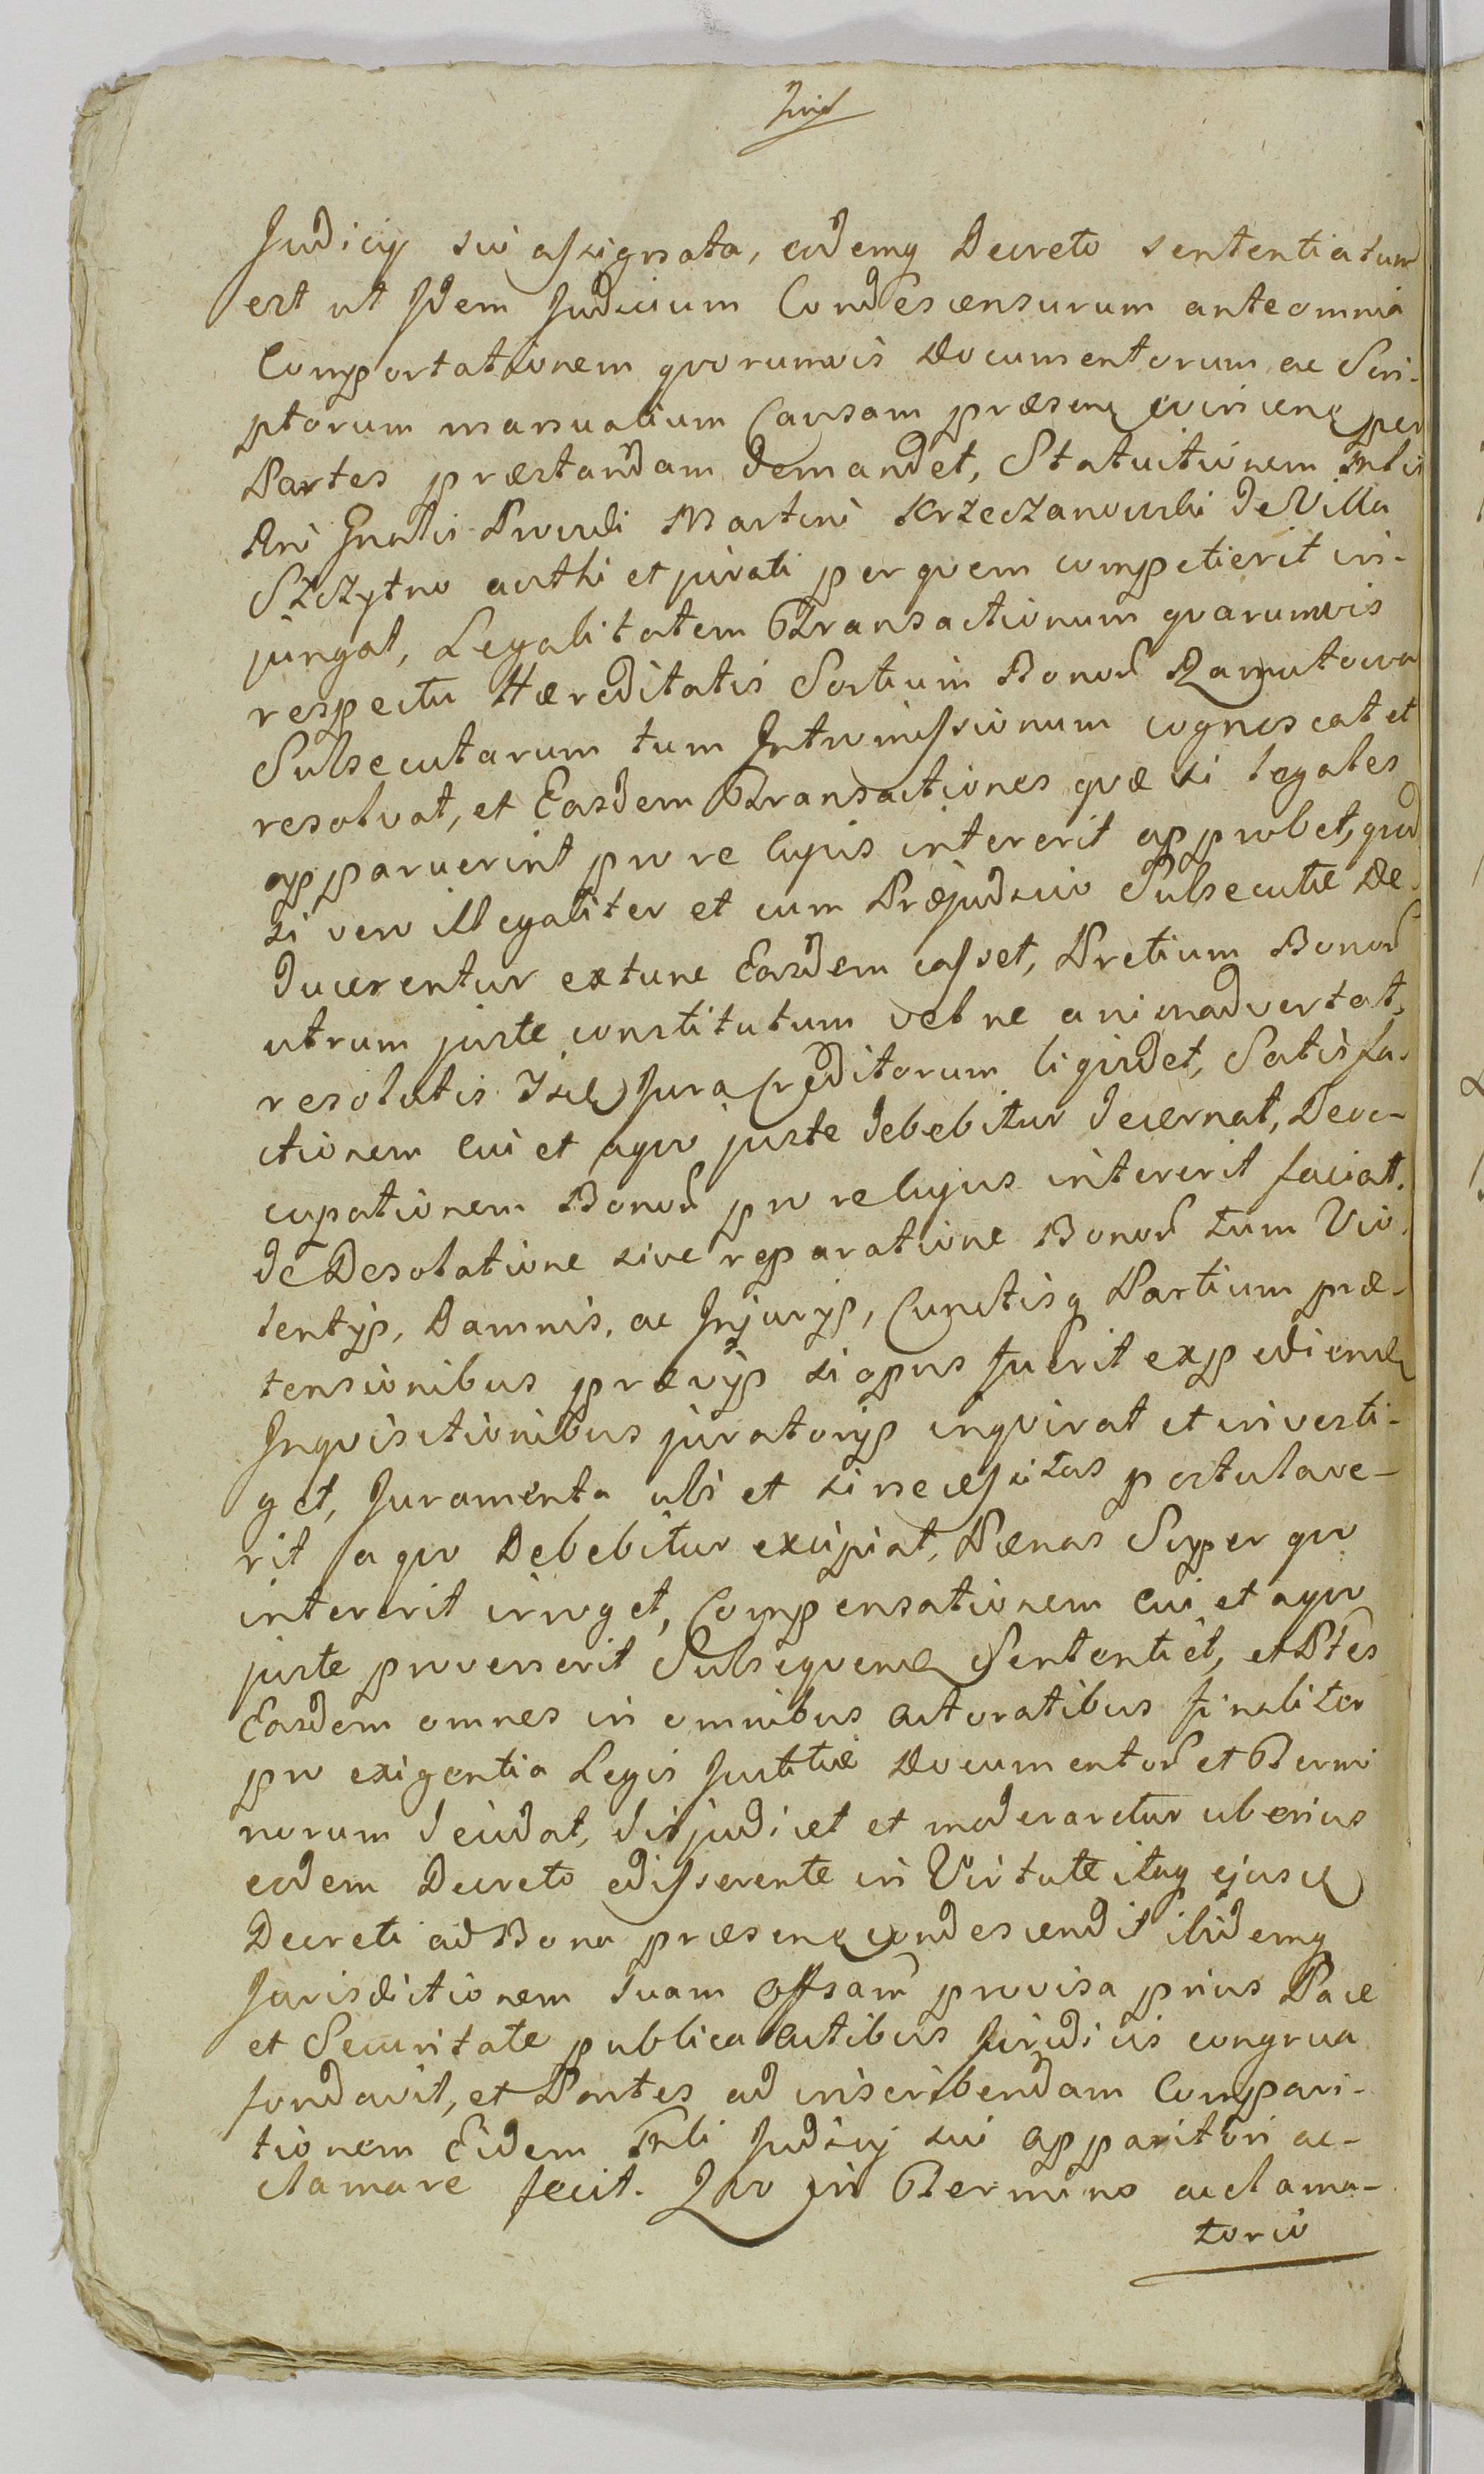 Judicij sui assignata, eodemq Decreto sententiatum
est ut Idem Judicium Condescensurum ante omnia
Comportationem qvorumvis Documentorum ac Scri-
ptorum manualium Causam præsen evincen per
Partes præstandam demandet, Statuitionem Mlis
Dni Gnalis Provdi Martini Krzeczanowski de Villa
Szczytno authi et jurati per qvem competierit in-
jungat, Legalitatem Transactionum qvarumvis
respectu Hæreditatis Sortium Bonor Zamutowa
Subsecutarum tum Intromissionum cognoscat et
resolvat, et Easdem Transactiones qvæ si legales
apparuerint pro re cujus intererit approbet, qvod
si vero illegaliter et cum Præjudicio Subsecutæ De-
ducerentur extunc Easdem casset, Pretium Bonor
utrum juste constitutum vel ne animadvertat,
resolutis Isce Jura Creditorum liqvidet, Satisfa-
ctionem cui et aqvo juste debebitur decernat, Deoc-
cupationem Bonor pro re cujus intererit faciat.
de Desolatione sive reparatione Bonor tum Vio-
lentijs, Damnis, ac Injurijs, Cunctisq Partium præ-
tensionibus prævijs si opus fuerit expedien
Inqvisitionibus juratorijs inqvirat et investi-
get, Juramenta ubi et si necessitas postulave-
rit a qvo Debebitur excipiat, Pænas Super qvo
intererit irroget, Compensationem cui et aqvo
juste provenerit Subseqven Sententiet, et Ptes
Easdem omnes in omnibus Actoratibus finaliter
pro exigentia Legis Justitiæ Documentor et Termi
norum decidat, disjudicet et moderaretur uberius
eodem Decreto edisserente in Virtute itaq ejusce
Decreti ad Bona præsen condescendit ibidemq
Jurisdictionem suam Offsam provisa prius Pace
et Securitate publica Actibus Juridicis congrua
fundavit, et Partes ad inscribendam Compari-
tionem Eidem Mli Judicij sui apparitori ac-
clamare fecit. Quo in Termino acclama-
torio